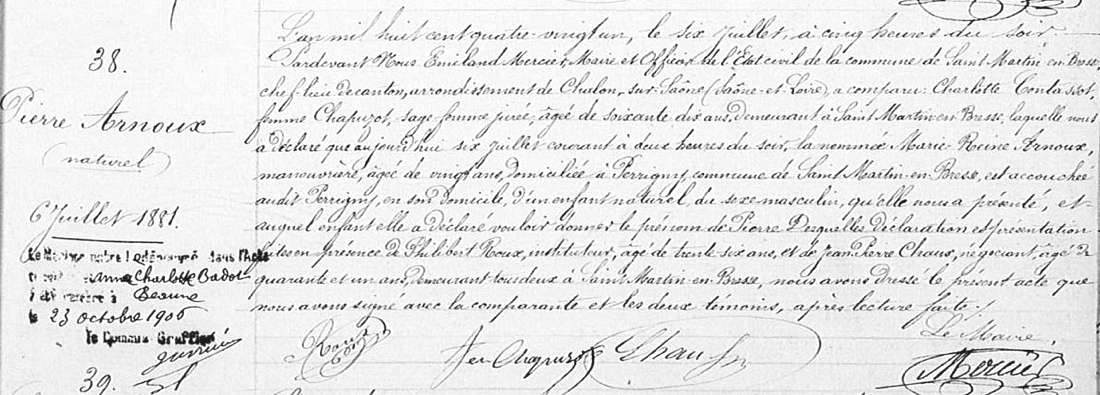 38.
Pierre Arnoux
(naturel)
6 Juillet 1881.
Le Mariage entre l dénommé dans l'Acte
Anna Charlotte Badot
a été célébré à Beaune
le 23 octobre 1906
le Commis Greffier
39.
L'an mil huit cent quatre-vingt un, le six Juillet, à cinq heures du soir
Pardevant Nous Emiland Mercier, Maire et Officier de l'Etat civil de la commune de Saint Martin en Bresse,
chef-lieu de canton, arrondissement de Chalon-sur-Saône (Saône-et-Loire), a comparu: Charlotte Contassot,
femme Chapuzot, sage femme jurée, âgée de soixante dix ans, demeurant à Saint Martin en Bresse, laquelle nous
a déclaré que aujourd'hui six juillet courant à deux heures du soir, la nommée Marie-Reine Arnoux,
manouvrière, âgée de vingt ans, domiciliée à Perrigny, commune de Saint Martin-en-Bresse, est accouchée
audit Perrigny, en son domicile, d'un enfant naturel, du sexe masculin, qu'elle nous a présenté, et
auquel enfant elle a déclaré vouloir donner le prénom de Pierre Desquelles déclaration et présentation
faites en présence de Philibert Roux, instituteur, âgé de trente six ans, et de Jean Pierre Chaux, négociant, âgé de
quarante et un ans, demeurant tous deux à Saint Martin-en-Bresse, nous avons dressé le présent acte que
nous avons signé avec la comparante et les deux témoins, après lecture faite.
Le Maire,
Roux fe Chapuzot Chaux Mercier